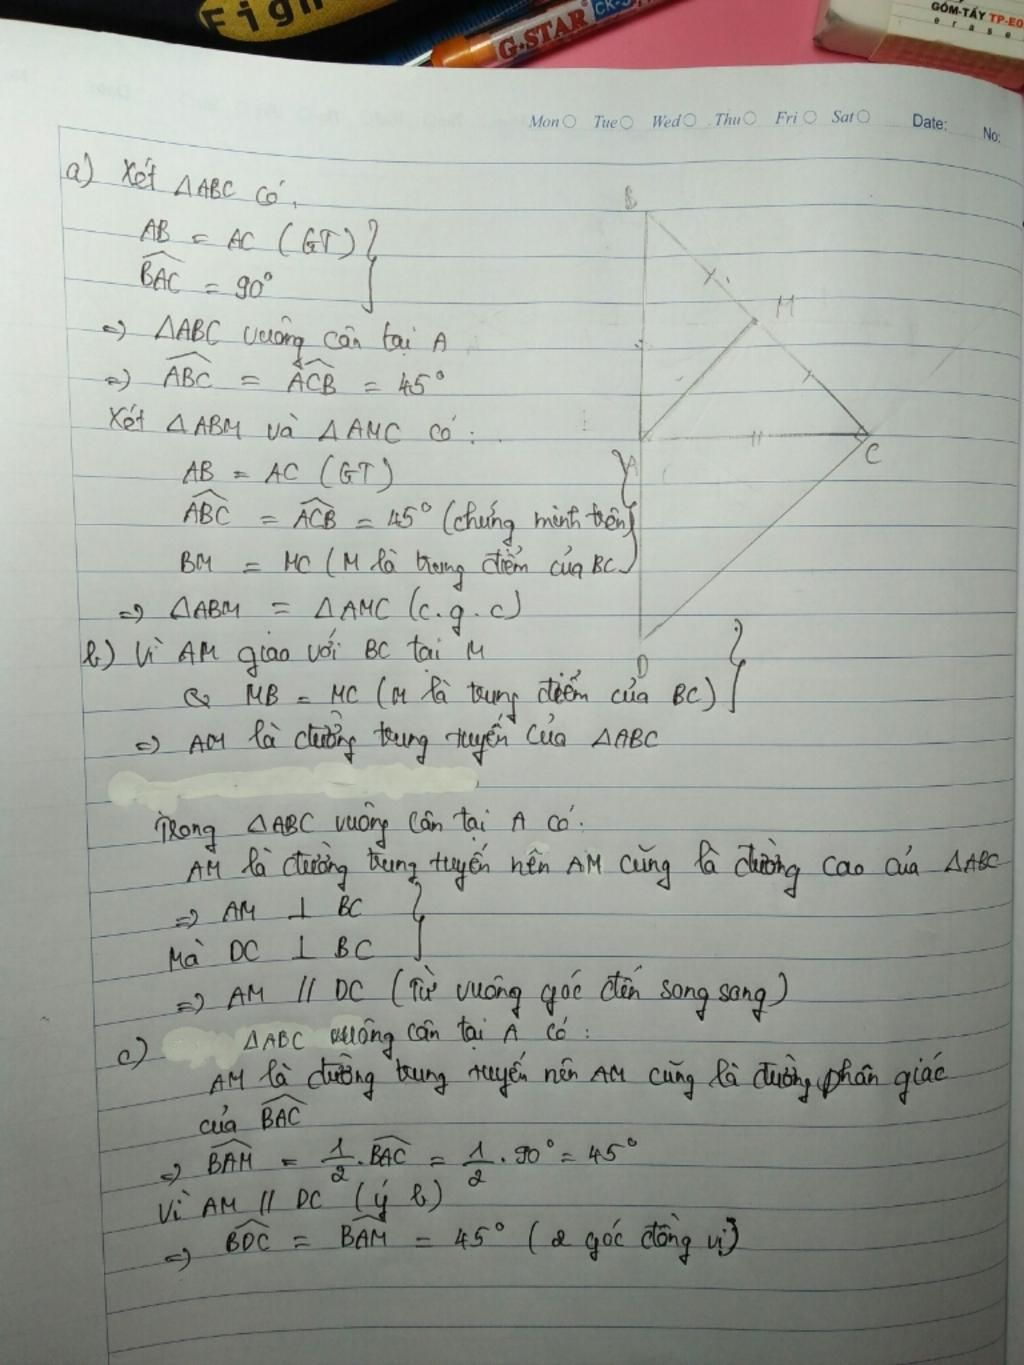 Fig
G-STAR
CK-
GÔM-TẨY TP-E0
erase
Mon Tue Wed Thu Fri Sat Date: No:
a) Xét △ABC có,
AB = AC (GT)
$\widehat{BAC}$ = 90°
=> △ABC vuông cân tại A
=> $\widehat{ABC}$ = $\widehat{ACB}$ = 45°
Xét △ABM và △AMC có:
AB = AC (GT)
$\widehat{ABC}$ = $\widehat{ACB}$ = 45° (chứng minh trên)
BM = MC (M là trung điểm của BC)
=> △ABM = △AMC (c.g.c)
b) Vì AM giao với BC tại M
& MB = MC (M là trung điểm của BC)
=> AM là đường trung tuyến của △ABC
Trong △ABC vuông cân tại A có:
AM là đường trung tuyến nên AM cũng là đường cao của △ABC
=> AM ⊥ BC
Mà DC ⊥ BC
=> AM // DC (Từ vuông góc đến song song)
c) △ABC vuông cân tại A có:
AM là đường trung tuyến nên AM cũng là đường phân giác
của $\widehat{BAC}$
=> $\widehat{BAM}$ = $\frac{1}{2}$.$\widehat{BAC}$ = $\frac{1}{2}$.90° = 45°
Vì AM // DC (ý b)
=> $\widehat{BDC}$ = $\widehat{BAM}$ = 45° (2 góc đồng vị)
B
M
A
C
D